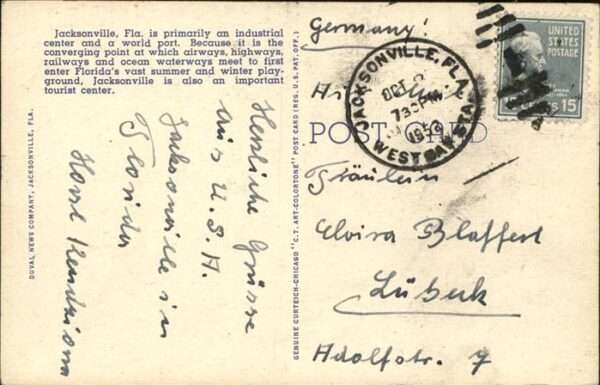 Jacksonville, Fla. is primarily an industrial
center and a world port. Because it is the
converging point at which airways, highways,
railways and ocean waterways meet to first
enter Florida's vast summer and winter play-
ground, Jacksonville is also an important
tourist center.
DUVAL NEWS COMPANY, JACKSONVILLE, FLA.
Herzliche Grüsse
aus U.S.A.
Jacksonville in
Florida
Horst
GENUINE CURTEICH-CHICAGO "C.T. ART-COLORTONE" POST CARD (REG. U.S. PAT. OFF.)
Germany!
JACKSONVILLE, FLA.
OCT
7 30 PM
WEST BAY STA.
UNITED
STATES
POSTAGE
15
POST CARD
Fräulein
Elvira Blaffert
Lübeck
Adolfstr. 7